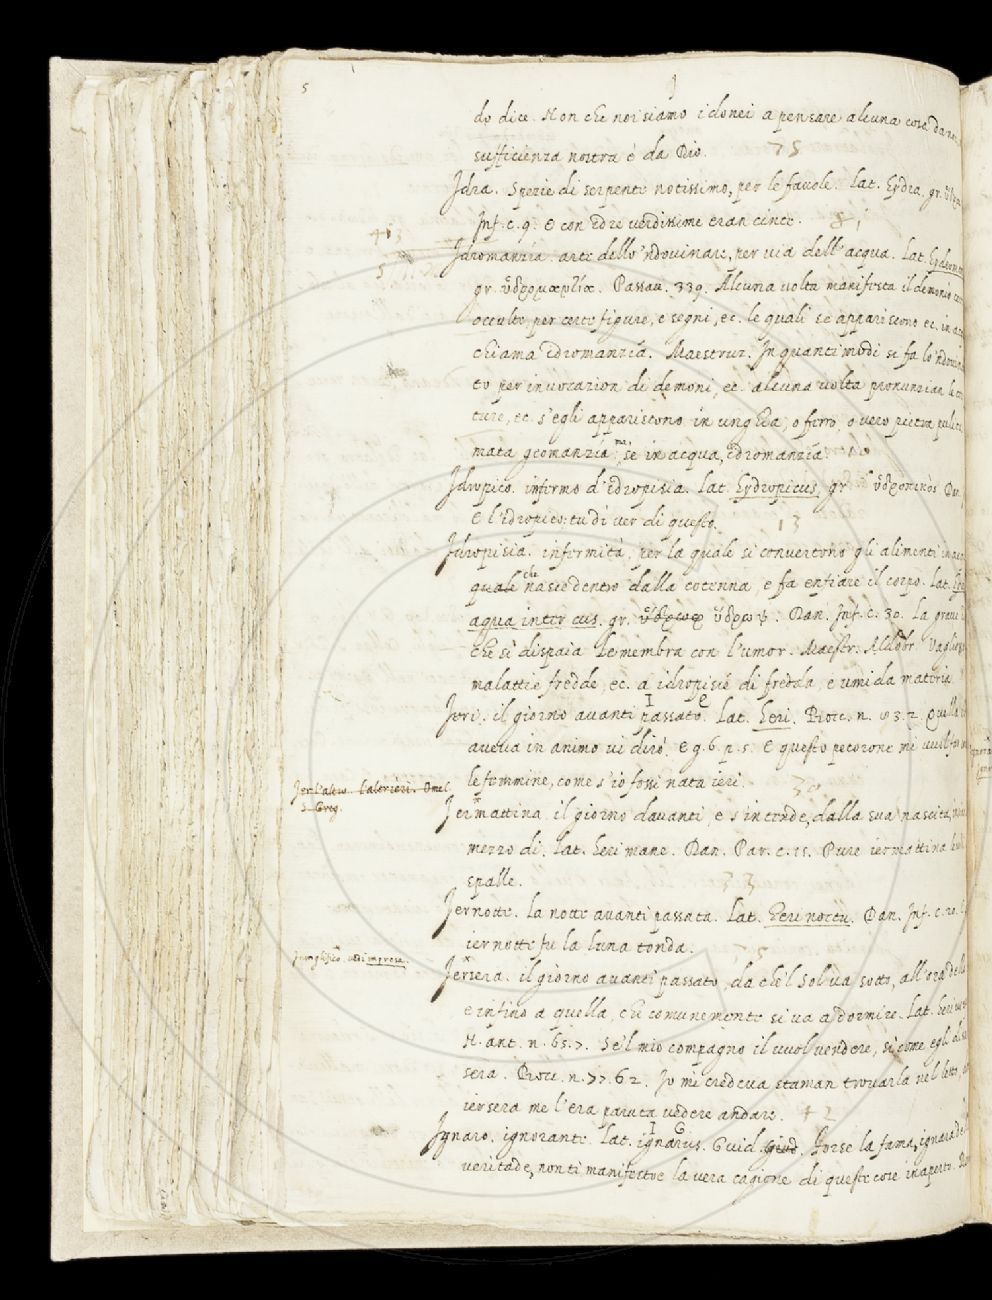 5
do dice. Non che noi siamo idonei a pensare alcuna cosa
sufficienza nostra è da Dio.
75
Idra. Spezie di serpente notissimo, per le favole. Lat. Hydra, gr.
Inf. c. 9. E con idre verdissime eran cinte.
Idromanzia. arte dello 'ndovinare, per via dell'acqua. Lat.
gr. Passav. 339. Alcuna volta manifesta il demonio
occulte per certe figure, e segni, ec. le quali se appariscono ec. in
chiama idromanzia. Maestruz. In quanti modi si fa lo
to per invocazion di demoni, ec. alcuna volta pronunzian le
ture, ec. s'egli appariscono in unghia, o ferro, o vero pietra
mata geomanzia: ma se in acqua, idromanzia.
Idropico. infermo d'idropisia. Lat. Hydropicus, gr. ὑδροπικὸς
E l'idropico: tu di ver di questo.
13
Idropisia. infermità, per la quale si convertono gli alimenti in
quale che nasce dentro dalla cotenna, e fa enfiare il corpo. Lat.
aqua inter cus. gr. ὕδρωψ. Dan. Inf. c. 30. La grave
che sì dispaia le membra con l'umor. Maestr. Aldobr.
malattie fredde, ec. a idropisie di fredda, e umida materia
Ieri. il giorno avanti passato. Lat. heri. Bocc. n. Quella
aveva in animo vi dirò. E g. 6. p. 5. E questo pecorone mi
le femmine, come s'io fossi nata ieri.
Ier l'altro. Omel.
S. Greg.
Iermattina. il giorno davanti, e s'intende, dalla sua nascita,
mezzo dì. Lat. heri mane. Dan. Par. c. 15. Pure iermattina
spalle.
33
Iernotte. La notte avanti passata. Lat. heri noctu. Dan. Inf. c. 20.
iernotte fu la luna tonda.
vedi impresa.
Iersera. il giorno avanti passato, da che 'l Sol va sotto, all'ora
e infino a quella, che comunemente si va a dormire. Lat.
N. ant. n. 65. 7. Se 'l mio compagno il vuol vendere, sì come egli
sera. Bocc. n. 77. 62. Io mi credeva staman trovarla nel letto,
iersera me l'era paruta vedere andare.
42
Ignaro. ignorante. Lat. ignarus. Guid. G. Forse la fama, ignara
veritade, non ti manifestoe la vera cagione di queste cose in aperto.